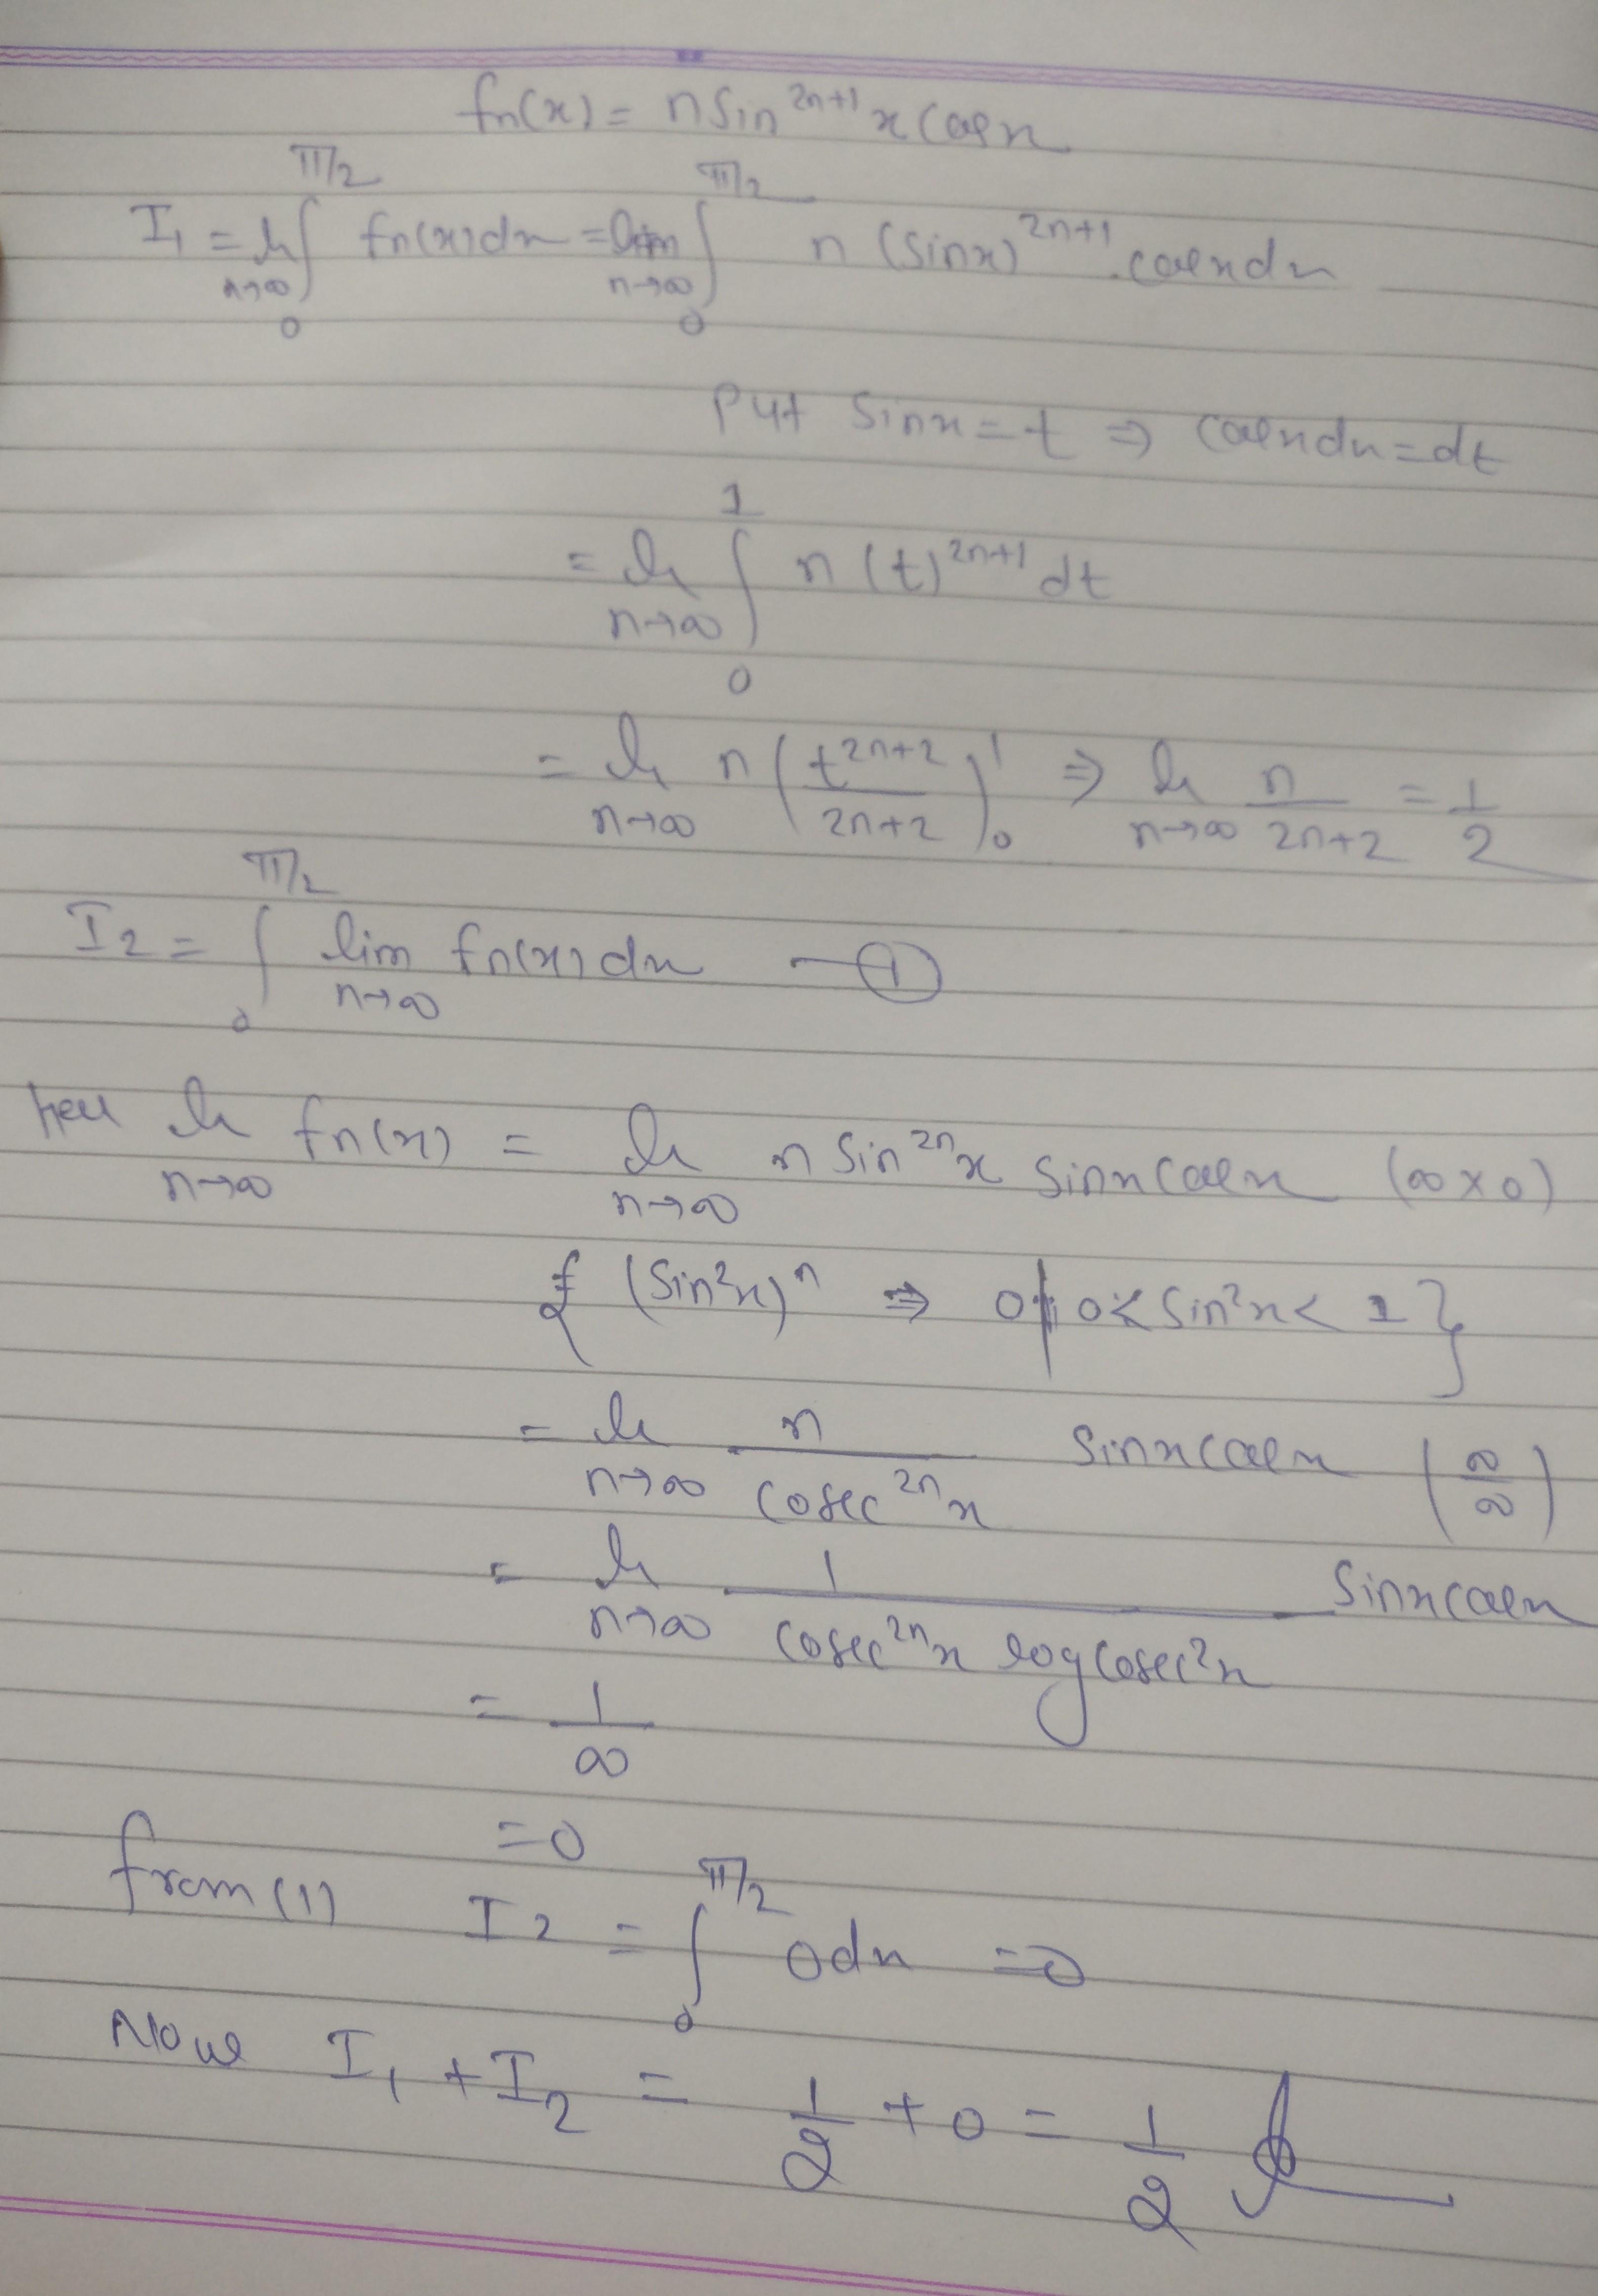 fn(x) = n Sin^{2n+1} x Cosx
I₁ = lim_{n→∞} ∫_0^{π/2} fn(x)dx = lim_{n→∞} ∫_0^{π/2} n (Sinx)^{2n+1} . cosxdx
Put Sinx = t ⇒ Cosxdx = dt
= lim_{n→∞} ∫_0^1 n (t)^{2n+1} dt
= lim_{n→∞} n (t^{2n+2}/2n+2)_0^1 ⇒ lim_{n→∞} n/2n+2 = 1/2
I2 = ∫_0^{π/2} lim_{n→∞} fn(x) dx — ①
here lim_{n→∞} fn(x) = lim_{n→∞} n Sin^{2n} x Sinx Cosx (∞ x 0)
{ (Sin²x)^n ⇒ 0 | 0 < Sin²x < 1 }
= lim_{n→∞} n/Cosec^{2n} x Sinx Cosx (∞/∞)
= lim_{n→∞} 1/Cosec^{2n} x log Cosec²x Sinx Cosx
= 1/∞
= 0
from (1) I2 = ∫_0^{π/2} 0 dx = 0
Now I₁ + I₂ = 1/2 + 0 = 1/2